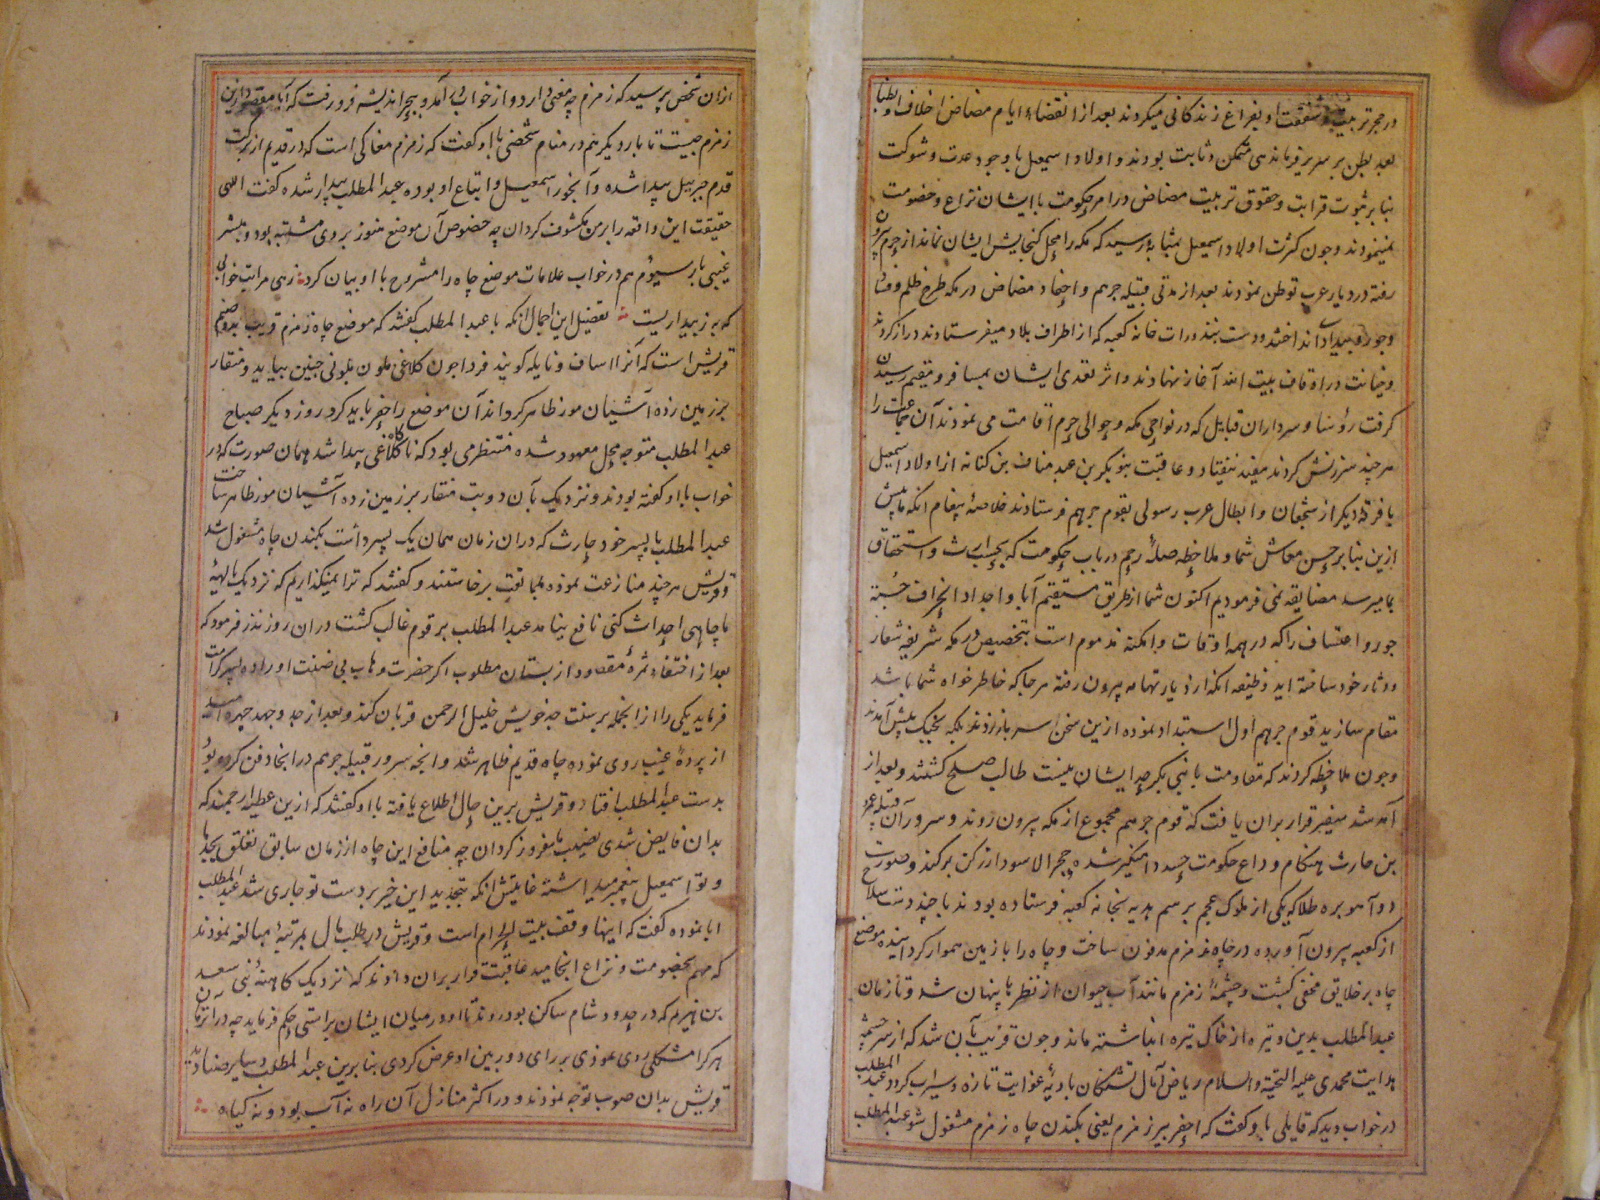 در حجر تربیت و شفقت او بفراغ زندکانی میکردند بعد از انقضاء ایام مضاض اخلاف او بطنا
بعد بطن بر سریر فرماندهی متمکن و ثابت بودند و اولاد اسمعیل با وجود عدت و شوکت
بنا بر ثبوت قرابت و حقوق تربیت مضاض در امر حکومت با ایشان نزاع و خصومت
نمینمودند و چون کثرت اولاد اسمعیل بمثابهٔ رسید که مکه را محل کنجایش ایشان نماند از حرم بیرون
رفته در دیار عرب توطن نمودند بعد از مدتی قبیله جرهم و احفاد مضاض در مکه طرح ظلم و فساد
و جور و بیداد انداختند و دست بنذورات خانه کعبه که از اطراف بلاد میفرستادند دراز کردند
و خیانت در اوقاف بیت الله آغاز نهادند و اثر تعدی ایشان بمسافر و مقیم رسیدن
کرفت رؤسا و سرداران قبایل که در نواحی مکه و حوالی حرم اقامت می نمودند آن جماعت را
هر چند سرزنش کردند مفید نیفتاد و عاقبت بنو بکر بن عبد مناف بن کنانه از اولاد اسمعیل
با فرقهٔ دیکر از شجعان و ابطال عرب رسولی بقوم جرهم فرستادند خلاصهٔ پیغام انکه ما پیش
ازین بنا بر حسن معاش شما و ملاحظه صلهٔ رحم در باب حکومت که بحسب ارث و استحقاق
بما میرسد مضایقه نمی فرمودیم اکنون شما از طریق مستقیم آبا و اجداد انحراف جسته
جور و اعتساف را که در همه اوقات و امکنه مذموم است بتخصیص در مکه شریفه شعار
و دثار خود ساخته اید وظیفه انکه از دیار تهامه بیرون رفته هر جا که خاطر خواه شما باشد
مقام سازید قوم جرهم اول استبداد نموده ازین سخن سر باز زدند بلکه بجنک پیش آمدند
و چون ملاحظه کردند که مقاومت با بنی بکر حد ایشان نیست طالب صلح کشتند و بعد از
آمد شد سفیر قرار بران یافت که قوم جرهم مجموع از مکه بیرون روند و سرور آن قبیله عمرو
بن حارث هنکام وداع حکومت حسد دامنکیر شده حجر الاسود از رکن برکند و صورت
دو آهو بره طلا که یکی از ملوک عجم برسم هدیه بخانه کعبه فرستاده بودند با چند دست سلاح
از کعبه بیرون آورده در چاه زمزم مدفون ساخت و چاه را با زمین هموار کردانیده موضع
چاه بر خلایق مخفی کشت و چشمهٔ زمزم مانند آب حیوان از نظرها پنهان شد و تا زمان
عبد المطلب بدین وتیره از خاک تیره انباشته ماند و چون قریب بآن شد که از سرچشمهٔ
هدایت محمدی علیه التحیة و السلام ریاض آمال تشنکان بادیهٔ غوایت تازه و سیراب کردد عبد المطلب
در خواب دید که قایلی با او کفت که احفر بیر زمزم یعنی بکندن چاه زمزم مشغول شو عبد المطلب
ازان شخص پرسید که زمزم چه معنی دارد و از خواب در آمد و ببحر اندیشه فرو رفت که آیا مقصود ازین
زمزم چیست تا بار دیکر هم در منام شخصی با او کفت که زمزم مغاکی است که در قدیم از برکت
قدم جبرییل پیدا شده و آبخور اسمعیل و اتباع او بوده عبد المطلب بیدار شده کفت الهی
حقیقت این واقعه را بر من مکشوف کردان چه خصوص آن موضع هنوز بر وی مشتبه بود و مبشر
غیبی بار سیوم هم در خواب علامات موضع چاه را مشروح با او بیان کرد زهی مراتب خوابی
که به ز بیداریست تفصیل این اجمال انکه با عبد المطلب کفتند که موضع چاه زمزم قریب بدو صنم
قریش است که آنرا اساف و نایله کویند فردا چون کلاغی ملون بلونی چنین بیاید و منقار
بر زمین زده آشیان مور ظاهر کرداند آن موضع را حفر باید کرد روز دیکر صباح
عبد المطلب متوجه محل معهود شده منتظر می بود که ناکاه کلاغی پیدا شد بهمان صورت که در
خواب با او کفته بودند و نزدیک بآن دو بت منقار بر زمین زده آشیان مور ظاهر ساخت
عبد المطلب با پسر خود حارث که دران زمان همان یک پسر داشت بکندن چاه مشغول شد
و قریش هر چند منازعت نموده بممانعت برخاستند و کفتند که ترا نمیکذاریم که نزدیک بالههٔ
ما چاهی احداث کنی نافع نیامد عبد المطلب بر قوم غالب کشت دران روز نذر فرمود که
بعد از اقتطاف ثمرهٔ مقصود از بستان مطلوب اکر حضرت وهاب بی ضنت او را ده پسر کرامت
فرماید یکی را از انجمله بر سنت جد خویش خلیل الرحمن قربان کند و بعد از جد و جهد چهره امید
از پردهٔ غیب روی نموده چاه قدیم ظاهر شد و انچه سرور قبیله جرهم در انجا دفن کرده بود
بدست عبد المطلب افتاد و قریش برین حال اطلاع یافته با او کفتند که ازین عطیه ارجمند که
بدان فایض شدی نصیب ما مفروز کردان چه منافع این چاه از زمان سابق تعلق بجد ما
و تو اسمعیل پیغمبر میداشته غایتش انکه تجدید این خیر بر دست تو جاری شد عبد المطلب
ابا نموده کفت که اینها وقف بیت الحرام است و قریش در طلب مال بمرتبهٔ مبالغه نمودند
که مهم بخصومت و نزاع انجامید عاقبت قرار بران دادند که نزدیک کاهنهٔ بنی سعد
بن هذیم که در حدود شام ساکن بود روند تا او در میان ایشان براستی حکم فرماید چه در آن زمان
هر کرا مشکلی روی نمودی بر رای دوربین او عرض کردی بنا برین عبد المطلب و سایر صنادید
قریش بدان صوب توجه نمودند و در اکثر منازل آن راه نه آب بود و نه کیاه